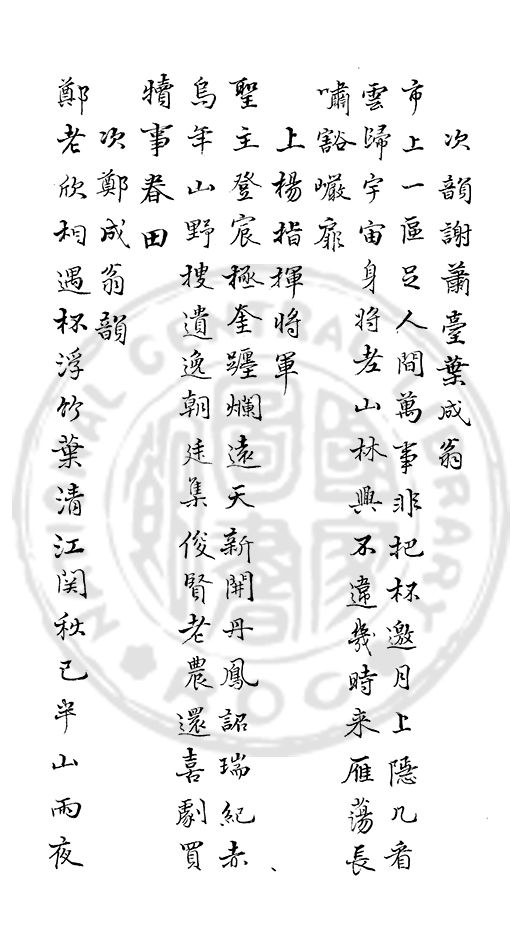 次韻謝蕭臺葉成翁
市上一區足人間萬事非把杯邀月上隱几看
雲歸宇宙身將老山林興不違幾時来雁蕩長
嘯豁巖扉
上楊指揮將軍
聖主登宸極奎躔爛遠天新開丹鳳詔瑞紀赤
烏年山野搜遺逸朝廷集俊賢老農還喜劇買
犢事春田
次鄭成翁韻
鄭老欣相遇杯浮竹葉清江関秋已半山雨夜
NATIONAL CENTRAL LIBRARY